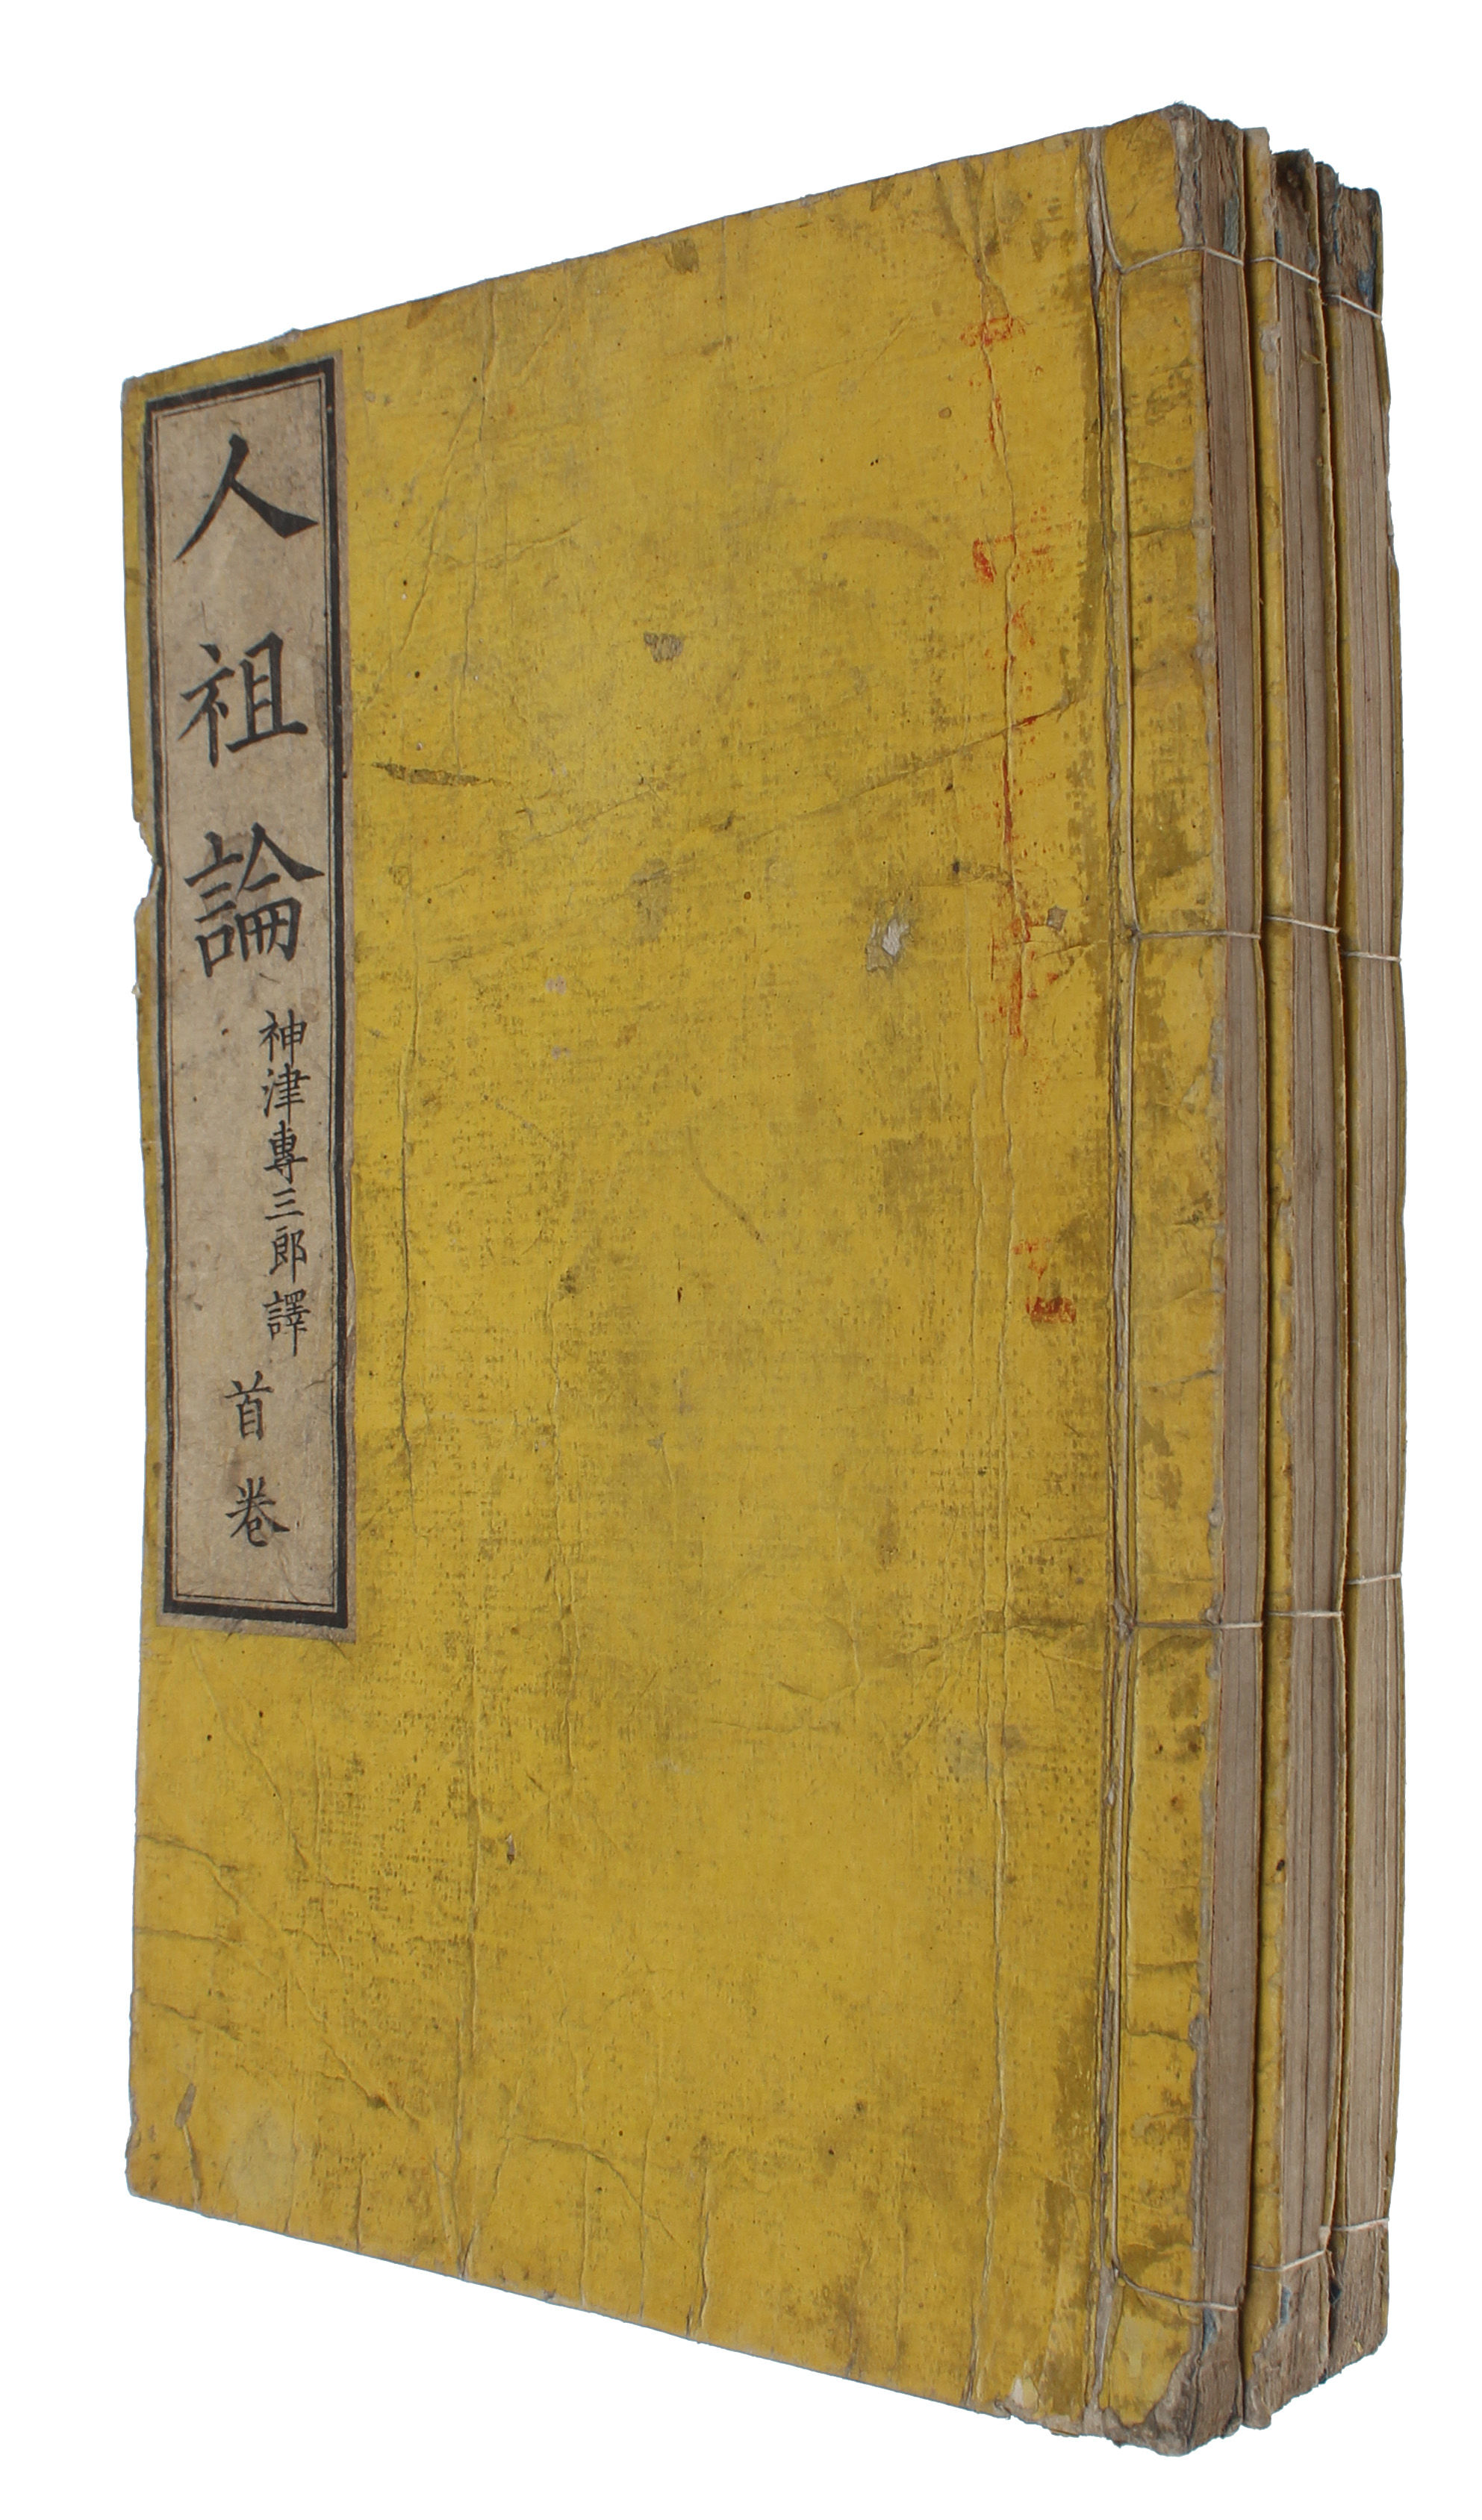 人祖論
神津專三郎譯
首巻